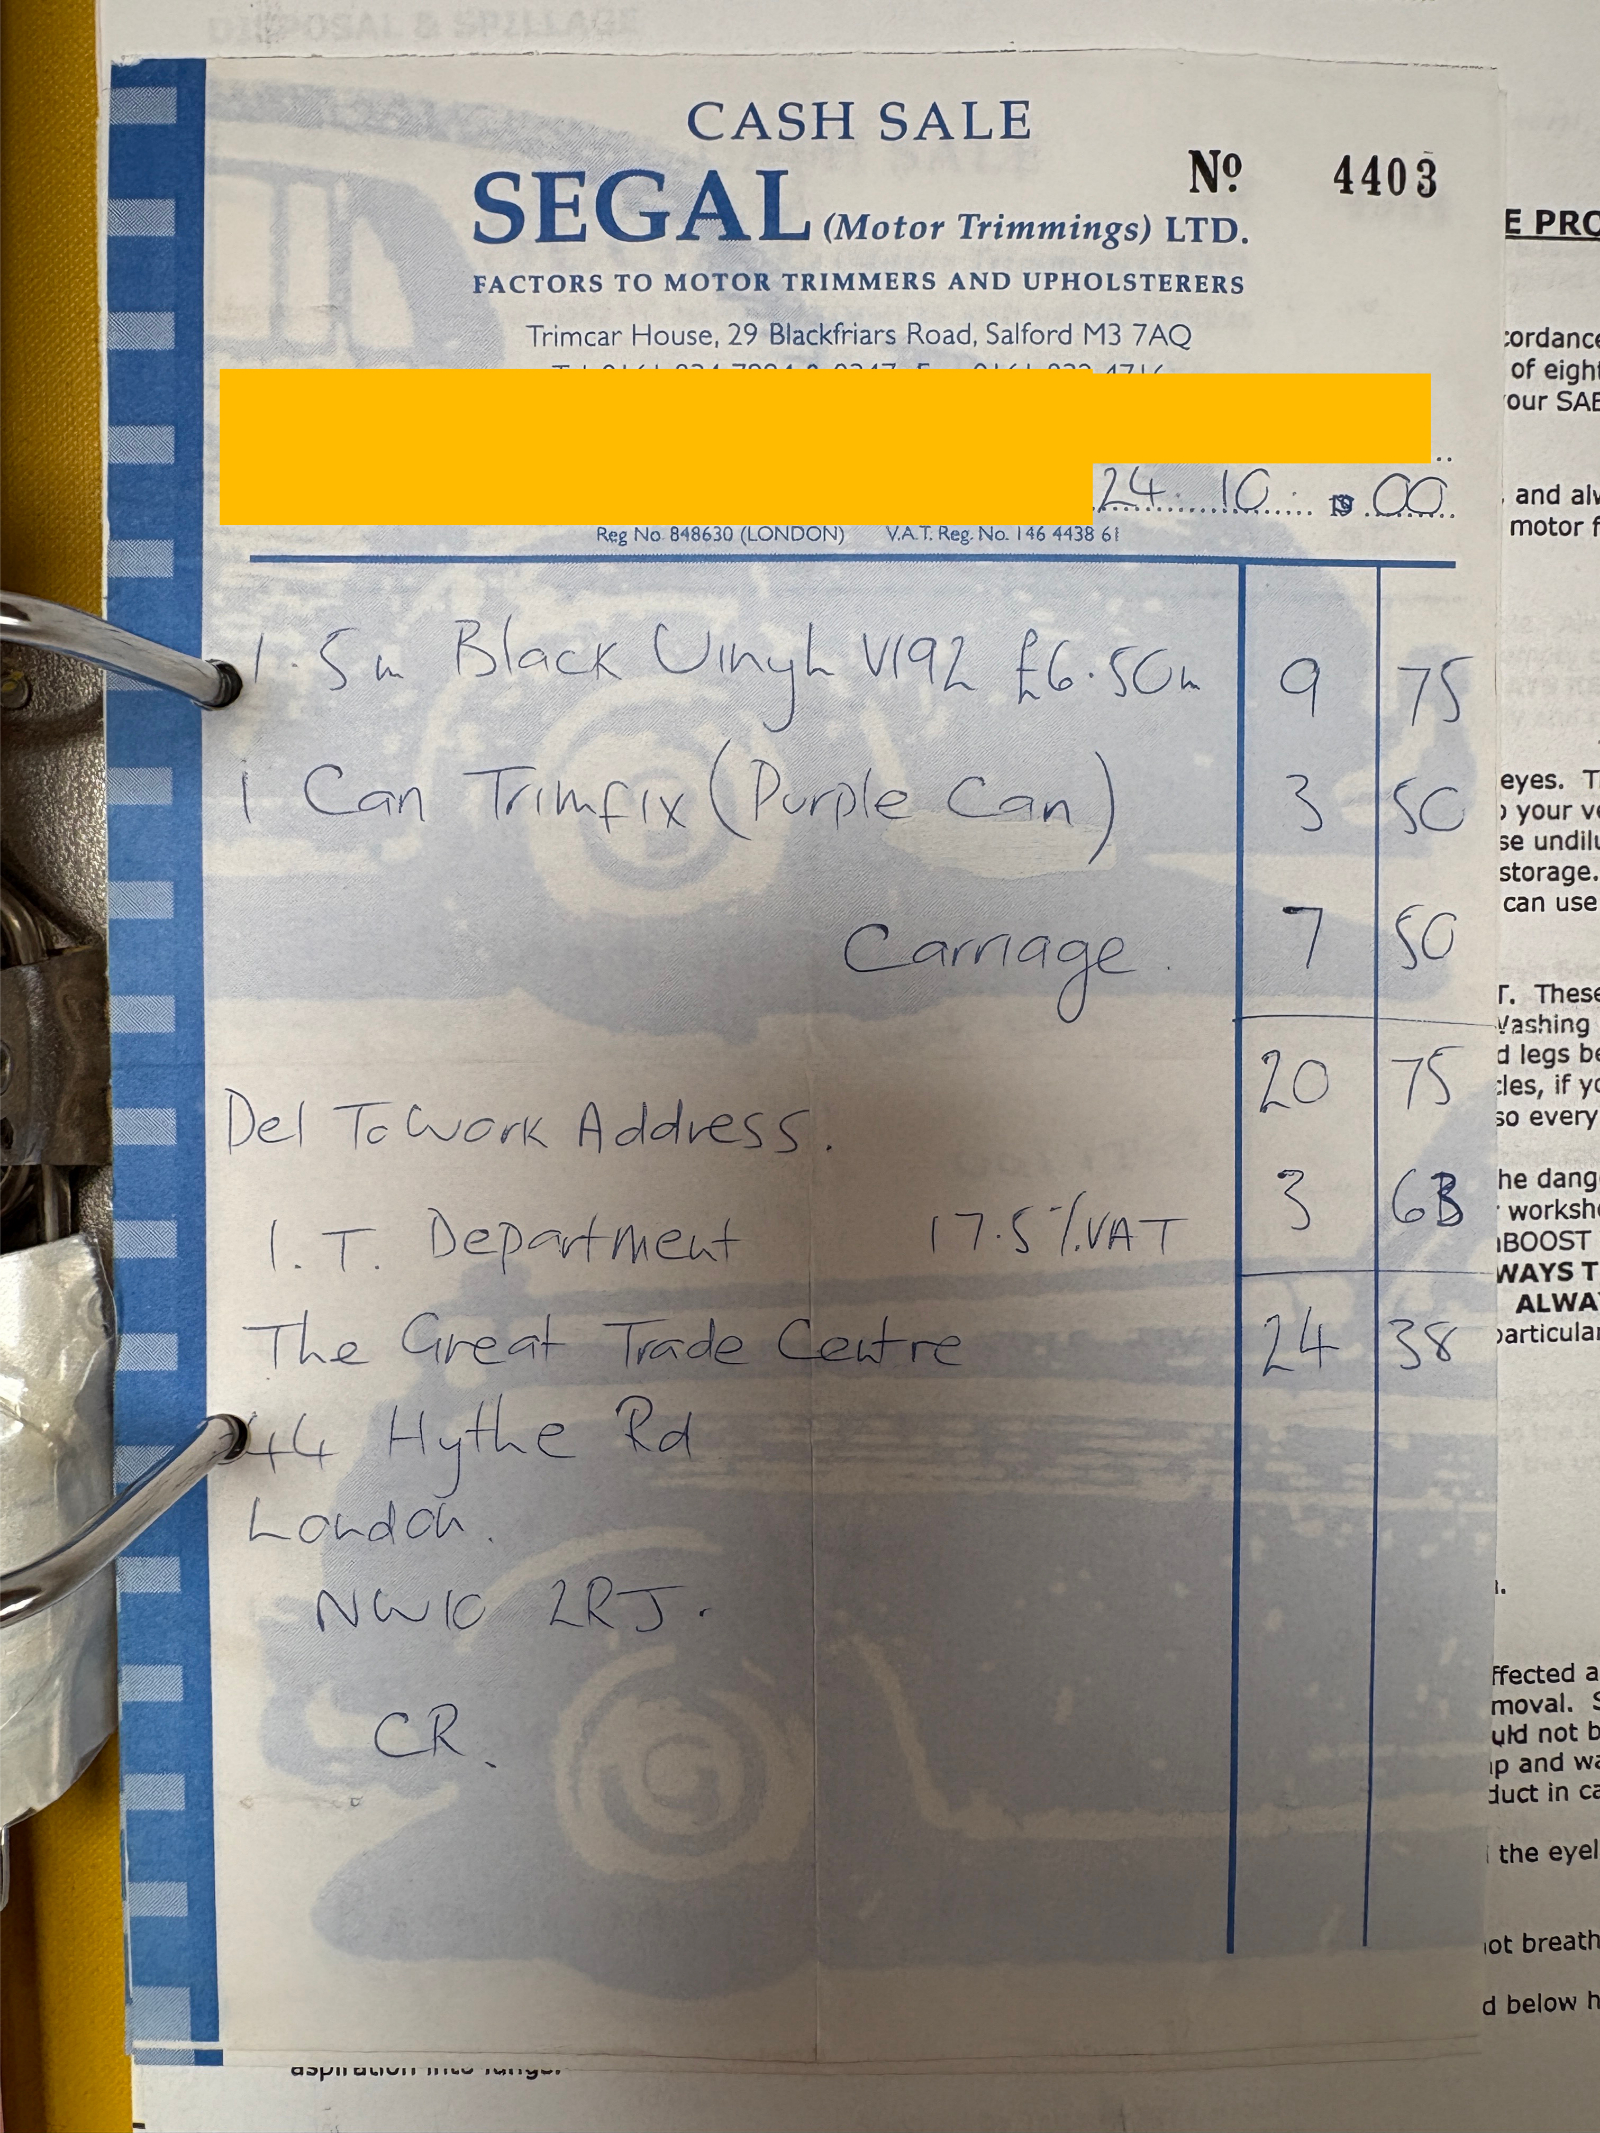 DISPOSAL & SPILLAGE
CASH SALE
Nº 4403
SEGAL (Motor Trimmings) LTD.
FACTORS TO MOTOR TRIMMERS AND UPHOLSTERERS
Trimcar House, 29 Blackfriars Road, Salford M3 7AQ
24. 10. 19 00
Reg No. 848630 (LONDON) V.A.T. Reg. No. 146 4438 61
1.5m Black Vinyl V192 £6.50m 9 75
1 Can Trimfix (Purple Can) 3 50
Carriage. 7 50
20 75
Del To Work Address.
3 63
I.T. Department 17.5% VAT
The Great Trade Centre 24 38
44 Hythe Rd
London.
NW10 2RJ.
CR.
E PRO
cordance
of eight
your SAE
and alw
motor f
eyes. T
your ve
se undilu
storage.
can use
T. These
Washing
d legs be
cles, if yo
so every
he dang
worksho
nBOOST
WAYS T
ALWA
particular
ffected a
moval. S
uld not b
ap and wa
duct in ca
the eyel
ot breath
d below h
aspiration into lungs.